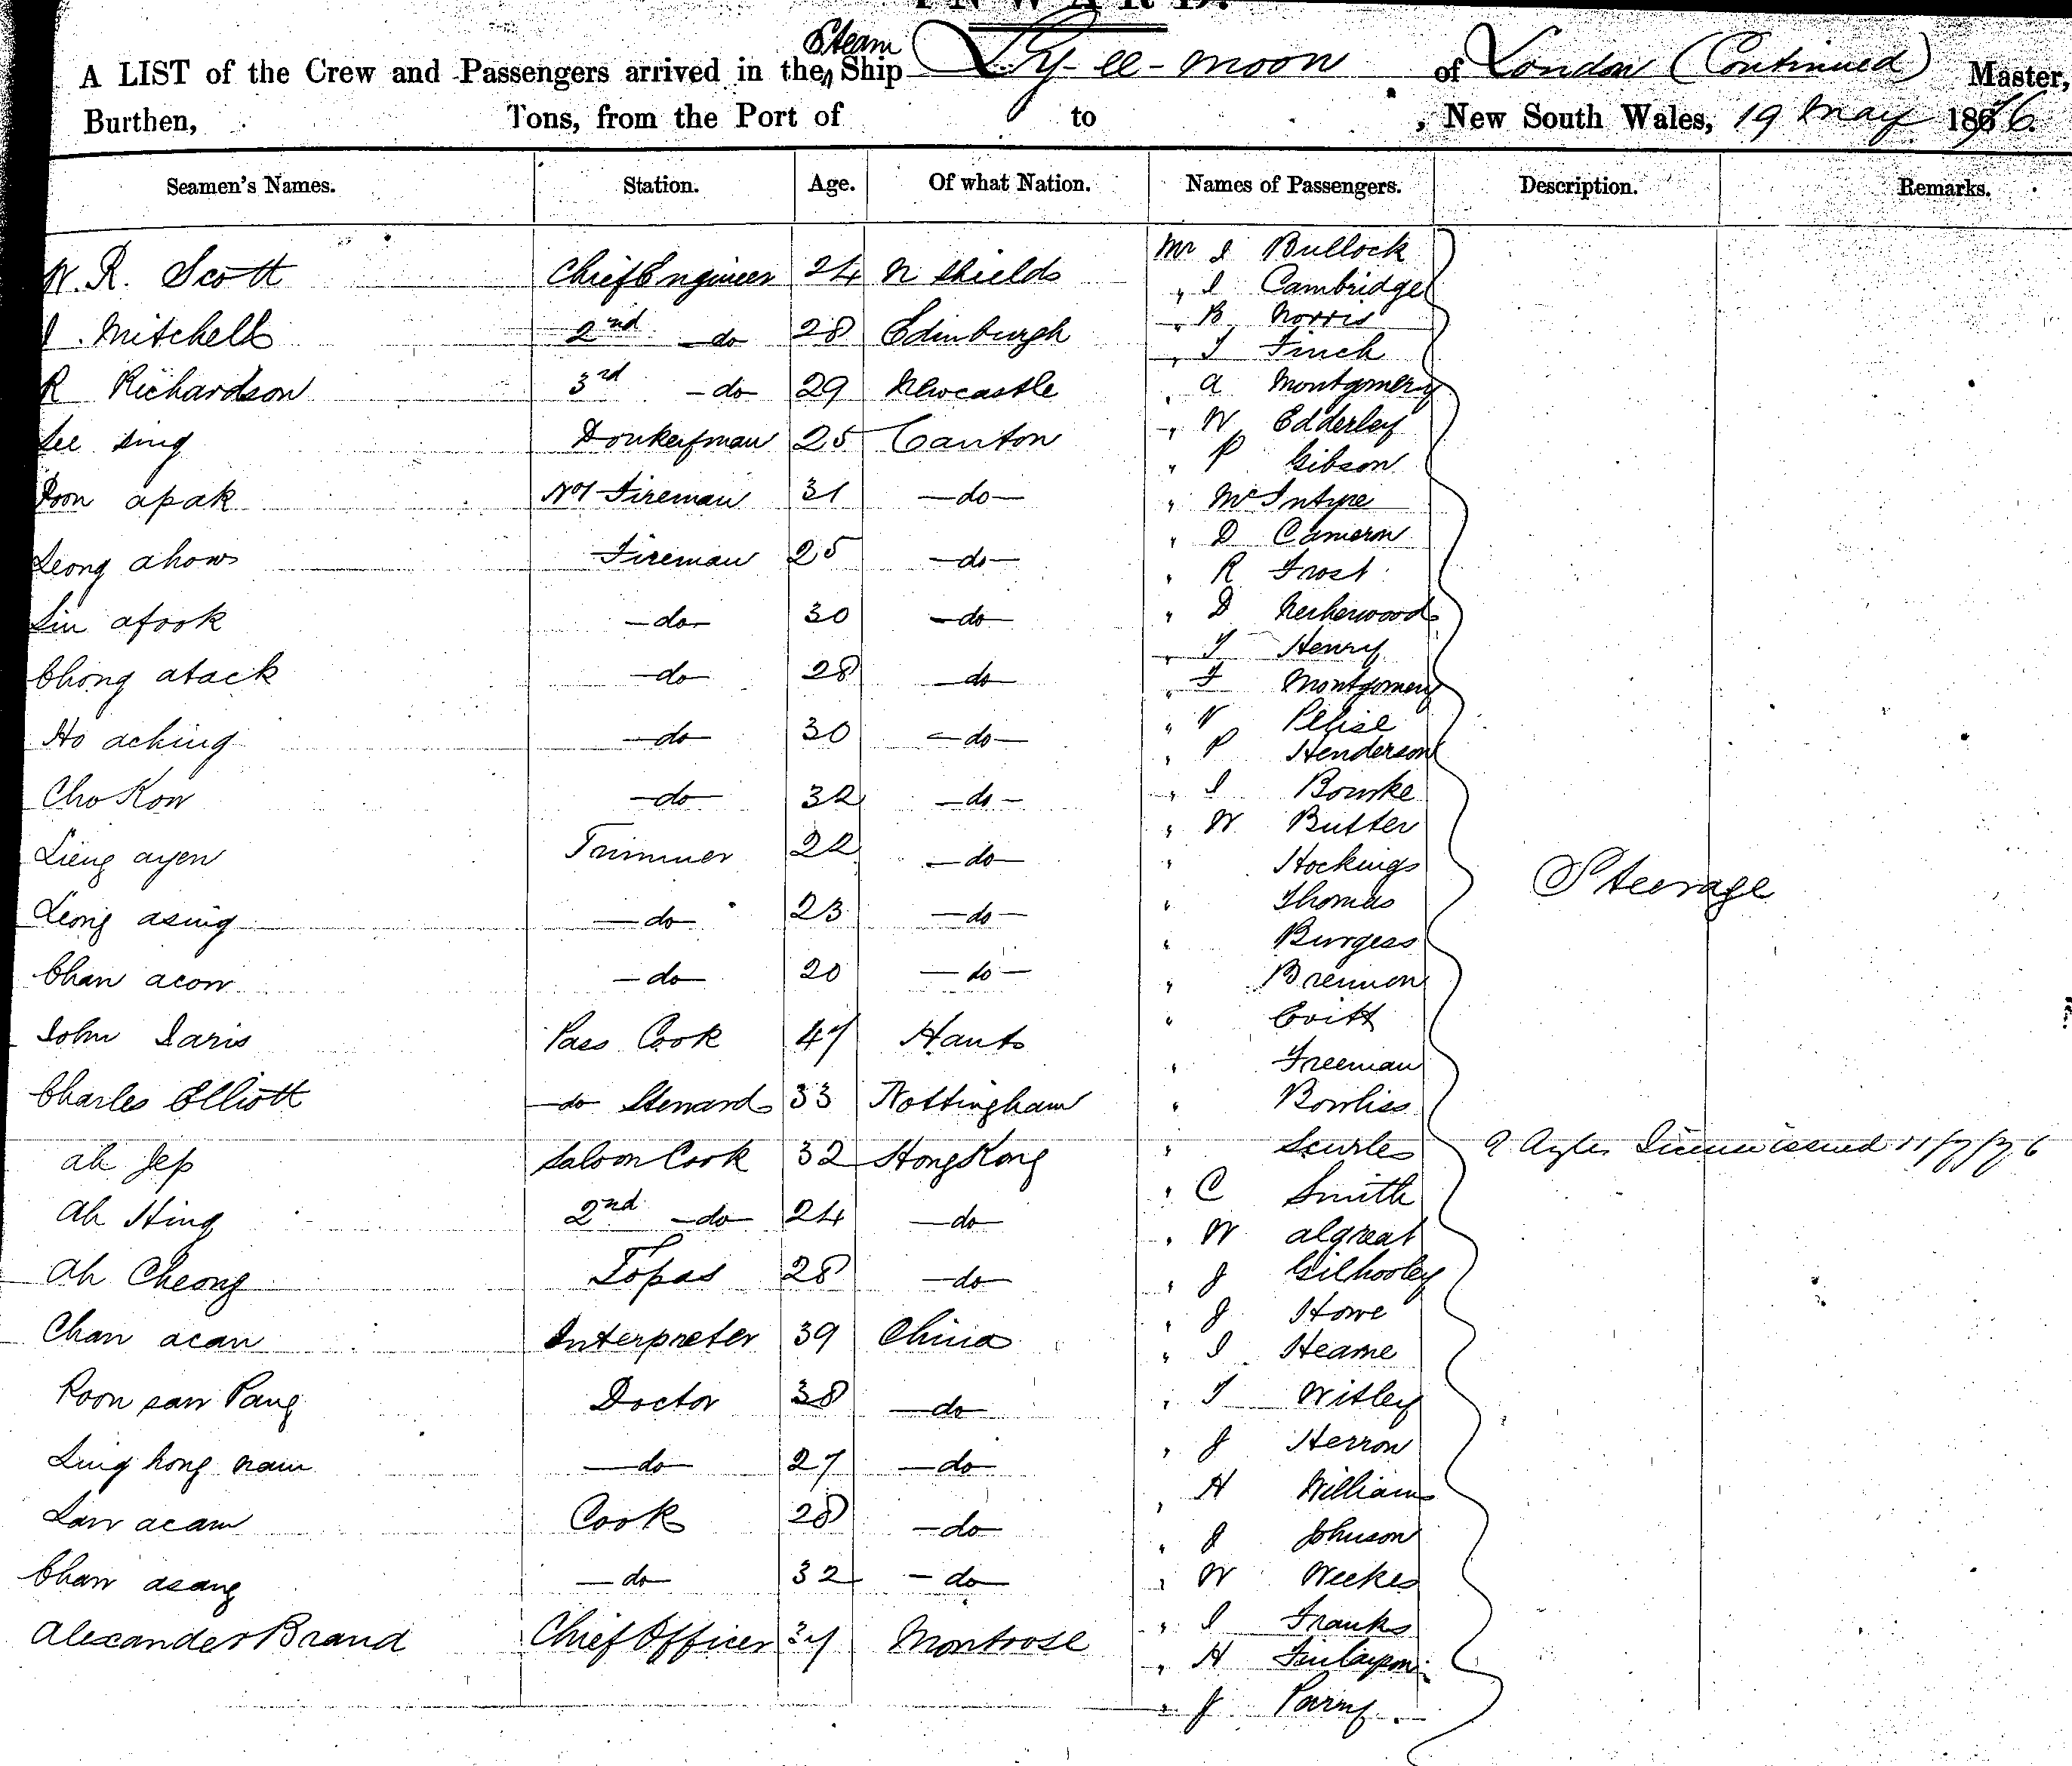 INWARD.
A LIST of the Crew and Passengers arrived in the Steam Ship Ly-ee-moon of London (Continued) Master,
Burthen, Tons, from the Port of to , New South Wales, 19 May 1876.
Seamen's Names. Station. Age. Of what Nation. Names of Passengers. Description. Remarks.
W. R. Scott Chief Engineer 24 N Shields
J. Mitchell 2nd do 28 Edinburgh
R Richardson 3rd do 29 Newcastle
Lee sing Donkeyman 25 Canton
Poon apak No 1 Fireman 31 do
Leong ahow Fireman 25 do
Liu afook do 30 do
Chong atack do 28 do
Ho aching do 30 do
Cho Kow do 32 do
Lieng ayen Trimmer 22 do
Leong asing do 23 do
Chan acow do 20 do
John Daris Pass Cook 47 Hants
Charles Elliott do Steward 33 Nottingham
ah Jep Saloon Cook 32 Hong Kong
Ah Hing 2nd do 24 do
Ah Cheong Topas 28 do
Chan acan Interpreter 39 China
Poon saw Pang Doctor 38 do
Ling hong nam do 27 do
Law acam Cook 28 do
Chan asang do 32 do
Alexander Brand Chief Officer 34 Montrose
Mr J Bullock
" J Cambridge
" B Norris
" T Finch
" A Montgomery
" W Edderley
" P Gibson
" McIntyre
" D Cameron
" R Frost
" D Netherwood
" T Henry
" F Montgomery
" V
" P Henderson
" J Bourke
" W Butter
" Hockings
" Thomas
" Burgess
" Brennon
" Coitt
" Freeman
" Bowliss
" Searle
" C Smith
" W algreat
" J Gilhooley
" J Howe
" J Hearne
" T Witley
" J Herron
" H Williams
" J Johnson
" W Weekes
" J Franks
" H Finlayson
" J Parry
Steerage
issued